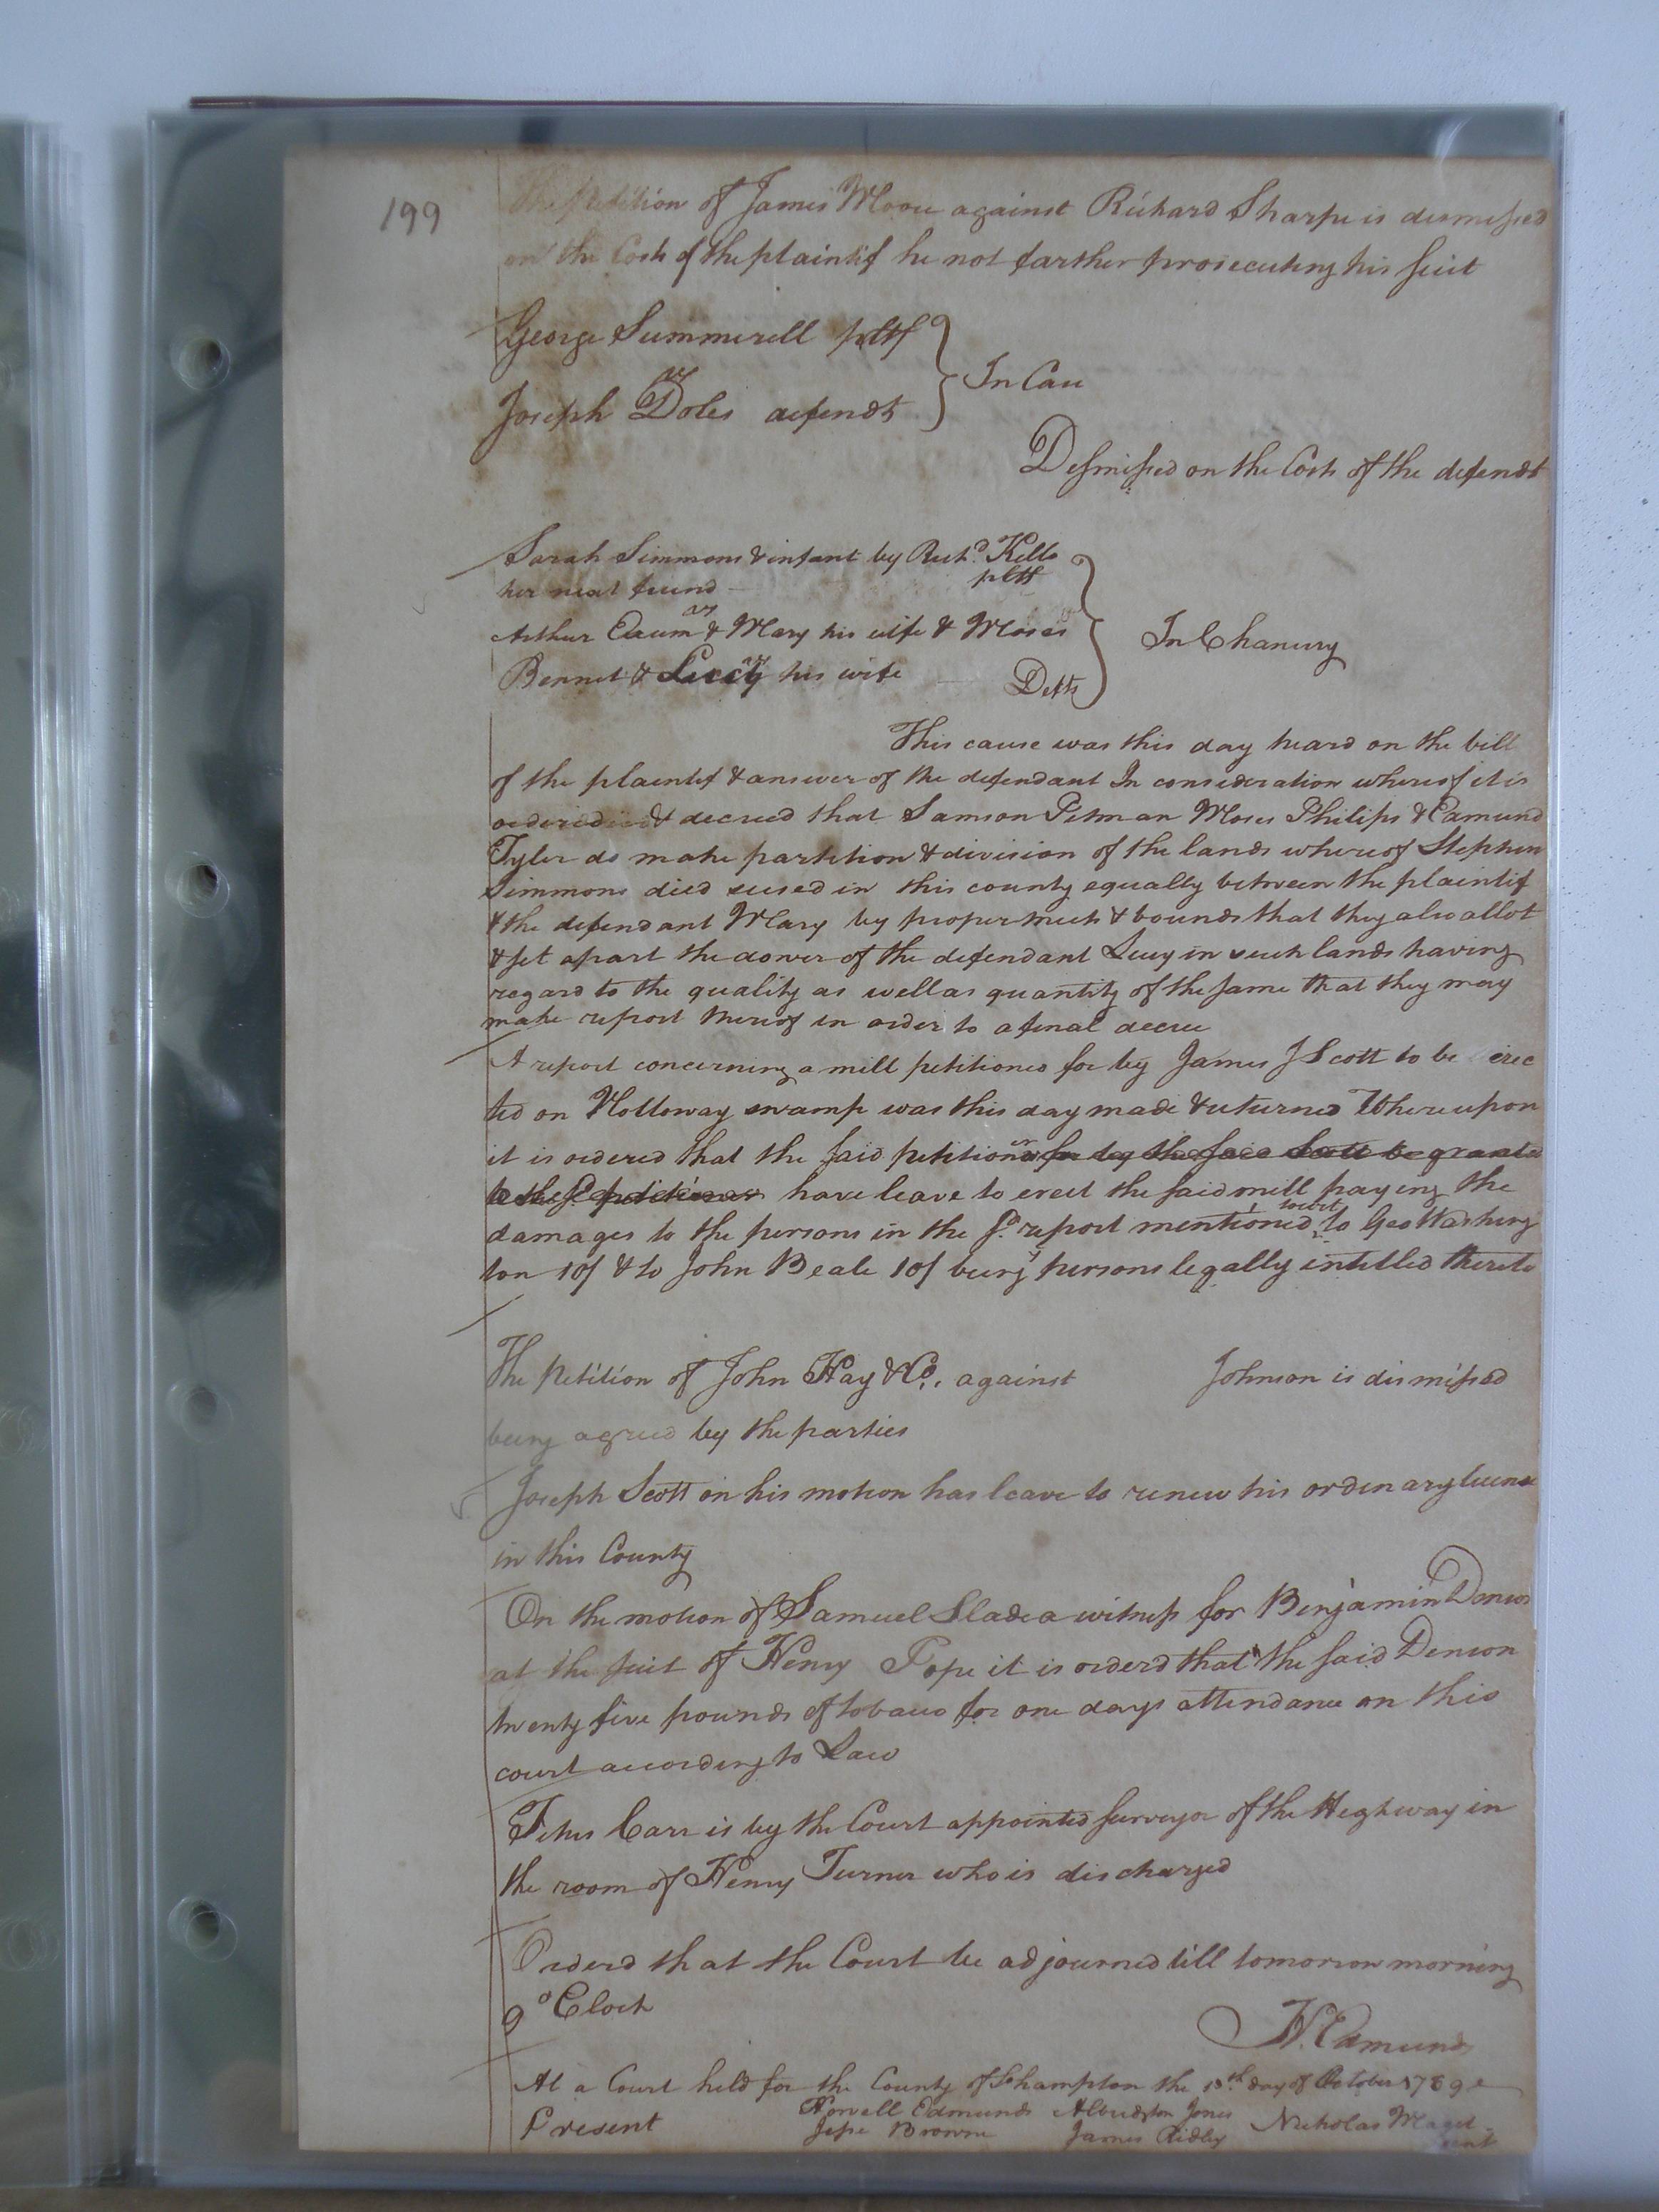 199
The Petition of James Moore against Richard Sharpe is dismissed
on the Costs of the plaintif he not farther prosecuting his suit
George Summerell pltf
vs
Joseph Doles defendt
In Case
Desmissed on the Costs of the defendt
Sarah Simmons & infant by Richd. Kello
her next freind pltf
vs
Arthur Exum & Mary his wife & Moses
Bennet & Lucy his wife Defts
In Chancery
This cause was this day heard on the bill
of the plaintif & answer of the defendant In consideration whereof it is
ordered & decreed that Samson Pitman Moses Philips & Edmund
Tyler do make partition & division of the lands whereof Stephen
Simmons died seised in this county equally between the plaintif
& the defendant Mary by proper meets & bounds that they also allot
& set apart the dower of the defendant Lucy in such lands having
regard to the quality as well as quantity of the same that they may
make report thereof in order to a final decree
A report concerning a mill petitioned for by James J Scott to be erec
ted on Holloway swamp was this day made & returned Whereupon
it is ordered that the said petitioner for by the said Scott be granted
to the sd. petitioner have leave to erect the said mill paying the
damages to the persons in the sd. report mentioned towit to Geo Washing
ton 10/ & to John Beale 10/ being ye persons legally intitled thereto
The Petition of John Hay & Co. against Johnson is dismissed
being agreed by the parties
Joseph Scott on his motion has leave to renew his ordinary licence
in this County
On the motion of Samuel Slade a witness for Benjamin Denson
at the suit of Henry Pope it is orderd that the said Denson
twenty five pounds of tobacco for one days attendance on this
court according to Law
Titus Carr is by the Court appointed surveyor of the Highway in
the room of Henry Turner who is discharged
Orderd that the Court be adjourned till tomorrow morning
9 oClock
H. Edmunds
At a Court held for the County of Sohampton the 13th day of October 1789
Present Howell Edmunds Albridgton Jones Nicholas Maget
Jesse Browne James Ridley gent